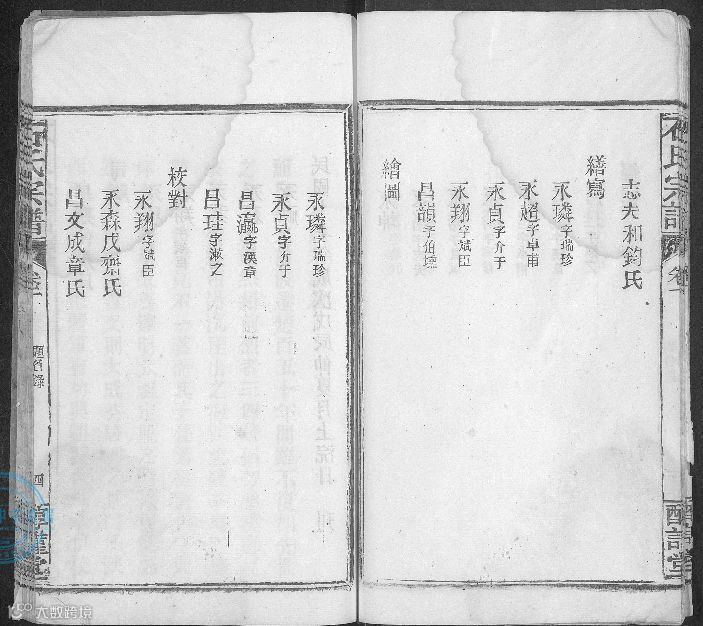 石氏宗譜
卷一
志夫和鈞氏
繕寫
永璘字瑞珍
永超字卓甫
永貞字介于
永翔字斌臣
昌韻字
繪圖
永璘字瑞珍
永貞字介于
昌瀛字漢章
昌珪字漱之
校對
永翔字斌臣
永森戊齋氏
昌文成章氏
石氏宗譜
卷一
題名錄
四
大数跨境